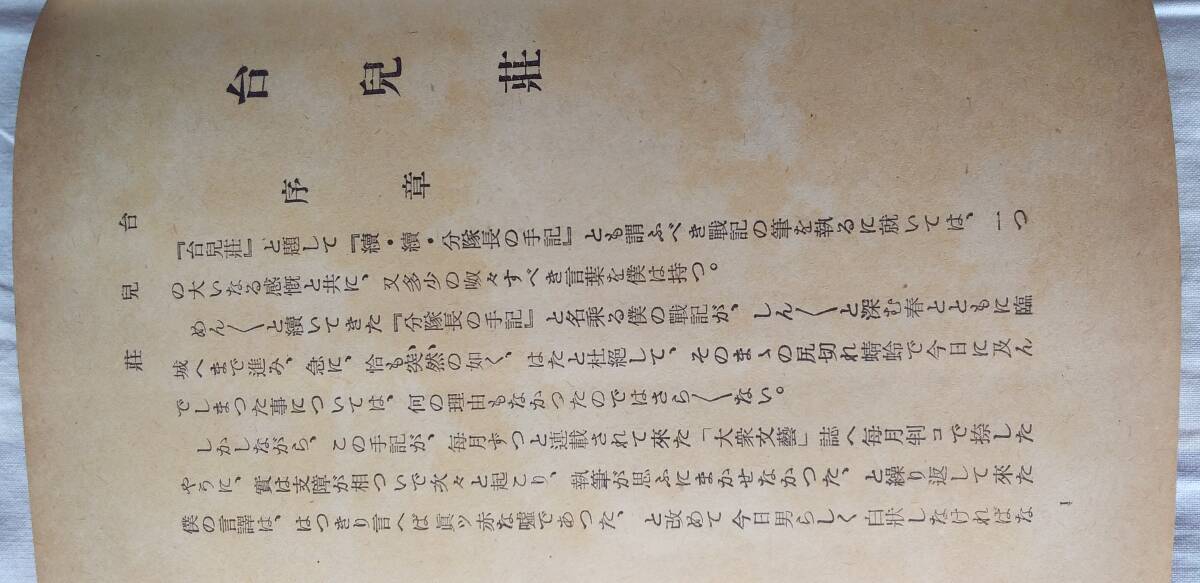 台兒莊
序章
『台兒莊』と題して『續・續・分隊長の手記』とも謂ふべき戰記の筆を執るに就いては、一つ
の大いなる感慨と共に、又多少の呶々すべき言葉を僕は持つ。
めん〱と續いてきた『分隊長の手記』と名乘る僕の戰記が、しん〱と深む春とともに臨
城へまで進み、急に、恰も突然の如く、はたと杜絶して、そのまゝの尻切れ蜻蛉で今日に及ん
でしまつた事については、何の理由もなかつたのではさら〱ない。
しかしながら、この手記が、毎月ずつと連載されて來た「大衆文藝」誌へ毎月判コで捺した
やうに、實は支障が相ついで次々と起こり、執筆が思ふにまかせなかつた、と繰り返して來た
僕の言譯は、はつきり言へば眞ッ赤な嘘であつた、と改めて今日男らしく白狀しなければな
台兒莊
1